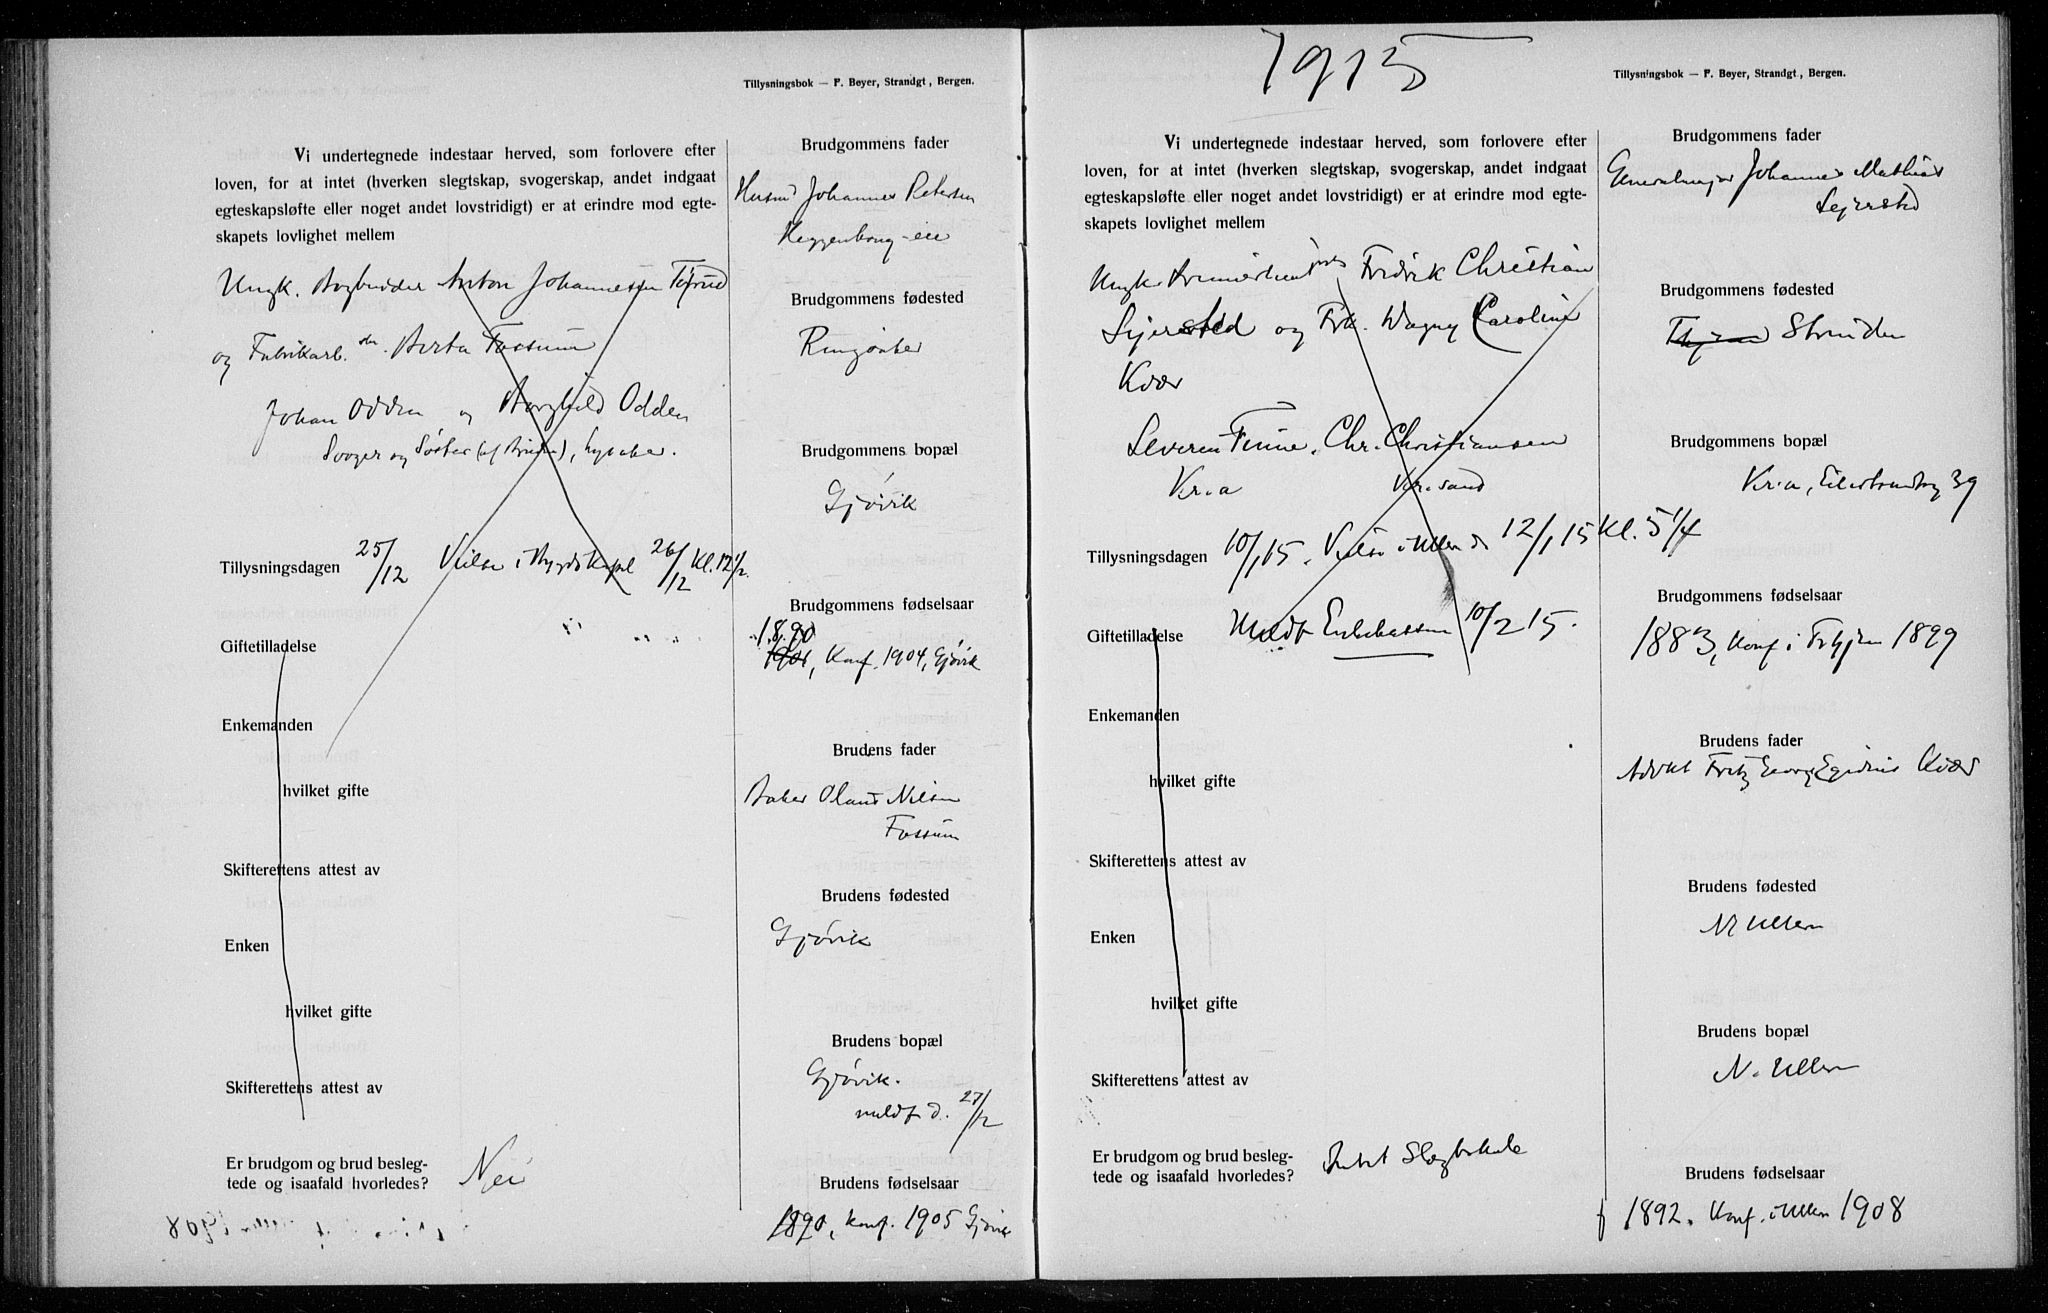 Tillysningsbok — F. Beyer, Strandgt, Bergen.
Vi undertegnede indestaar herved, som forlovere efter
loven, for at intet (hverken slegtskap, svogerskap, andet indgaat
egteskapsløfte eller noget andet lovstridigt) er at erindre mod egte-
skapets lovlighet mellem
Ungk. Anton Johannessen
og Fabrikarb. Berta Fossum
Johan Odden og Borghild Odden
Svoger og Søster (af Bruden), Lysaker.
Tillysningsdagen 25/12 Vielse i 26/12 Kl. 12 1/2.
Giftetilladelse
Enkemanden
hvilket gifte
Skifterettens attest av
Enken
hvilket gifte
Skifterettens attest av
Er brudgom og brud besleg-
tede og isaafald hvorledes? Nei
Brudgommens fader
Husmd Johannes Petersen
Heggenhaug-eie
Brudgommens fødested
Ringsaker
Brudgommens bopæl
Gjøvik
Brudgommens fødselsaar
1890
1901, Konf. 1904, Gjøvik
Brudens fader
Baker Olaus Nilsen
Fossum
Brudens fødested
Gjøvik
Brudens bopæl
Gjøvik.
meldt d. 27/12
Brudens fødselsaar
1890, Konf. 1905 Gjøvik
1915
Tillysningsbok — F. Beyer, Strandgt, Bergen.
Vi undertegnede indestaar herved, som forlovere efter
loven, for at intet (hverken slegtskap, svogerskap, andet indgaat
egteskapsløfte eller noget andet lovstridigt) er at erindre mod egte-
skapets lovlighet mellem
Ungk. Premierløint Fredrik Christian
Sejersted og Frk. Dagny Caroline
Kiær
Severin Finne, Chr. Christiansen
Kr.a Kr.sand
Tillysningsdagen 10/1 15. Vielse i Ullern d 12/1 15 Kl. 5 1/4
Giftetilladelse Meldt 10/2 15.
Enkemanden
hvilket gifte
Skifterettens attest av
Enken
hvilket gifte
Skifterettens attest av
Er brudgom og brud besleg-
tede og isaafald hvorledes? Intet Slægtskab
Brudgommens fader
Generalmajor Johannes Mathias
Sejersted
Brudgommens fødested
Strinden
Brudgommens bopæl
Kr.a, 39
Brudgommens fødselsaar
1883, Konf i Trhjem 1899
Brudens fader
Advkt Fritz Georg Egidius Kiær
Brudens fødested
N Ullern
Brudens bopæl
N. Ullern
Brudens fødselsaar
f 1892. Konf. i Ullern 1908